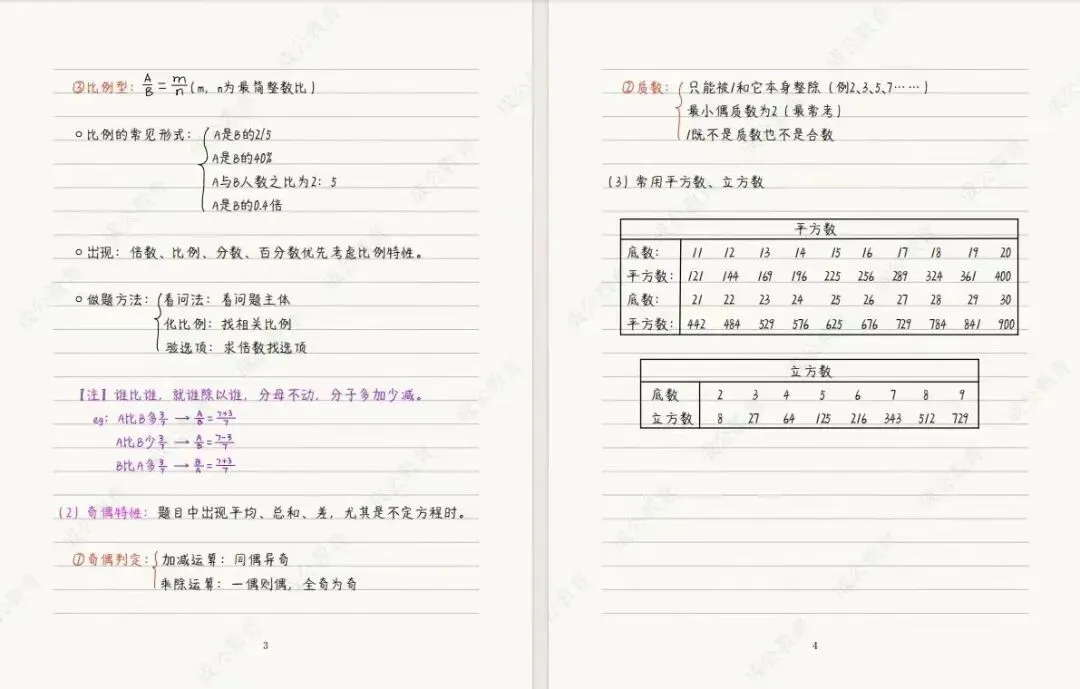 ③比例型：A/B=m/n(m，n为最简整数比）
○比例的常见形式：A是B的2/5
A是B的40%
A与B人数之比为2：5
A是B的0.4倍
○出现：倍数、比例、分数、百分数优先考虑比例特性。
○做题方法：看问法：看问题主体
化比例：找相关比例
验选项：求倍数找选项
『注』谁比谁，就谁除以谁，分母不动，分子多加少减。
eg：A比B多3/7→A/B=7+3/7
A比B少3/7→A/B=7-3/7
B比A多3/7→B/A=7+3/7
（2）奇偶特性：题目中出现平均、总和、差，尤其是不定方程时。
①奇偶判定：加减运算：同偶异奇
乘除运算：一偶则偶，全奇为奇
3
②质数：只能被1和它本身整除（例2、3、5、7……）
最小偶质数为2（最常考）
1既不是质数也不是合数
（3）常用平方数、立方数
平方数
底数： 11 12 13 14 15 16 17 18 19 20
平方数： 121 144 169 196 225 256 289 324 361 400
底数： 21 22 23 24 25 26 27 28 29 30
平方数： 442 484 529 576 625 676 729 784 841 900
立方数
底数 2 3 4 5 6 7 8 9
立方数 8 27 64 125 216 343 512 729
4